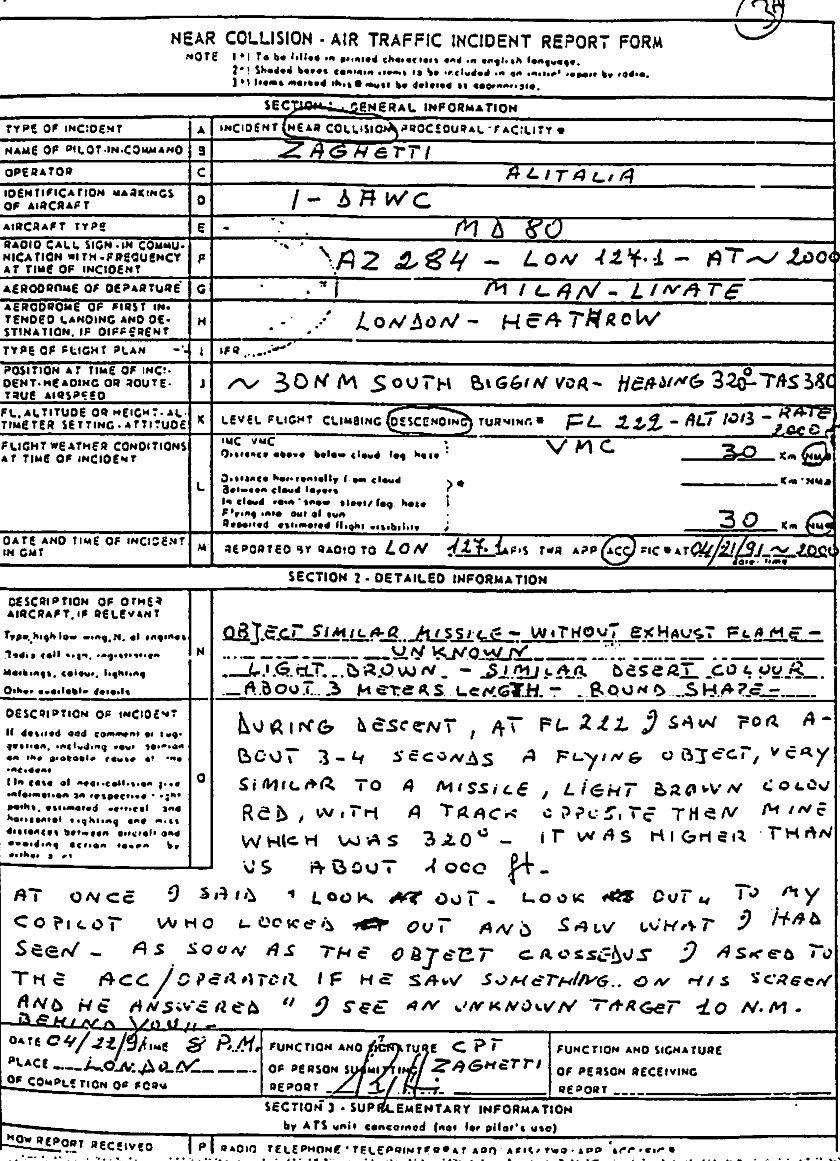 NEAR COLLISION - AIR TRAFFIC INCIDENT REPORT FORM
NOTE 1°) To be filled in printed characters and in english language.
2°) Shaded boxes contain items to be included in an initial report by radio.
3°) Items marked this * must be deleted as appropriate.
SECTION 1 - GENERAL INFORMATION
TYPE OF INCIDENT A INCIDENT NEAR COLLISION PROCEDURAL FACILITY *
NAME OF PILOT-IN-COMMAND B ZAGHETTI
OPERATOR C ALITALIA
IDENTIFICATION MARKINGS OF AIRCRAFT D I - DAWC
AIRCRAFT TYPE E MD 80
RADIO CALL SIGN - IN COMMU-
NICATION WITH - FREQUENCY
AT TIME OF INCIDENT F AZ 284 - LON 127.1 - AT ~ 2000
AERODROME OF DEPARTURE G MILAN - LINATE
AERODROME OF FIRST IN-
TENDED LANDING AND DE-
STINATION, IF DIFFERENT H LONDON - HEATHROW
TYPE OF FLIGHT PLAN I IFR
POSITION AT TIME OF INCI-
DENT-HEADING OR ROUTE-
TRUE AIRSPEED J ~ 30NM SOUTH BIGGIN VOR - HEADING 320° TAS 380
FL, ALTITUDE OR HEIGHT - AL-
TIMETER SETTING - ATTITUDE K LEVEL FLIGHT CLIMBING DESCENDING TURNING * FL 222 - ALT 1013 - RATE 2000
FLIGHT WEATHER CONDITIONS
AT TIME OF INCIDENT L IMC VMC VMC
Distance above below cloud fog haze 30 Km NM*
Distance horizontally from cloud Km NM*
Between cloud layers
In cloud rain snow sleet/fog haze
Flying into out of sun
Reported estimated flight visibility 30 Km NM*
DATE AND TIME OF INCIDENT
IN GMT M REPORTED BY RADIO TO LON 127.1 AFIS TWR APP ACC FIC * AT 04/21/91 ~ 2000
date - time
SECTION 2 - DETAILED INFORMATION
DESCRIPTION OF OTHER
AIRCRAFT, IF RELEVANT
Type, high low wing, N. of engines N OBJECT SIMILAR MISSILE - WITHOUT EXHAUST FLAME -
Radio call sign, registration UNKNOWN
Markings, colour, lighting LIGHT BROWN - SIMILAR DESERT COLOUR
Other available details ABOUT 3 METERS LENGTH - ROUND SHAPE -
DESCRIPTION OF INCIDENT O
If desired add comment or sug-
gestion, including your opinion
on the probable cause of the
incident
(In case of near-collision give
information on respective flight
paths, estimated vertical and
horizontal sighting and miss
distances between aircraft and
avoiding action taken by
either
DURING DESCENT, AT FL 222 I SAW FOR A-
BOUT 3-4 SECONDS A FLYING OBJECT, VERY
SIMILAR TO A MISSILE, LIGHT BROWN COLOU
RED, WITH A TRACK OPPOSITE THEN MINE
WHICH WAS 320° - IT WAS HIGHER THAN
US ABOUT 1000 ft.
AT ONCE I SAID " LOOK OUT - LOOK OUT " TO MY
COPILOT WHO LOOKED OUT AND SAW WHAT I HAD
SEEN - AS SOON AS THE OBJECT CROSSED US I ASKED TO
THE ACC/OPERATOR IF HE SAW SOMETHING ON HIS SCREEN
AND HE ANSWERED " I SEE AN UNKNOWN TARGET 10 N.M.
BEHIND YOU" -
DATE 04/22/91 TIME 8 P.M.
PLACE LONDON
OF COMPLETION OF FORM
FUNCTION AND SIGNATURE CPT
OF PERSON SUBMITTING ZAGHETTI
REPORT
FUNCTION AND SIGNATURE
OF PERSON RECEIVING
REPORT
SECTION 3 - SUPPLEMENTARY INFORMATION
by ATS unit concerned (not for pilot's use)
HOW REPORT RECEIVED P RADIO TELEPHONE TELEPRINTER * AT ARO AFIS/TWR APP ACC FIC *